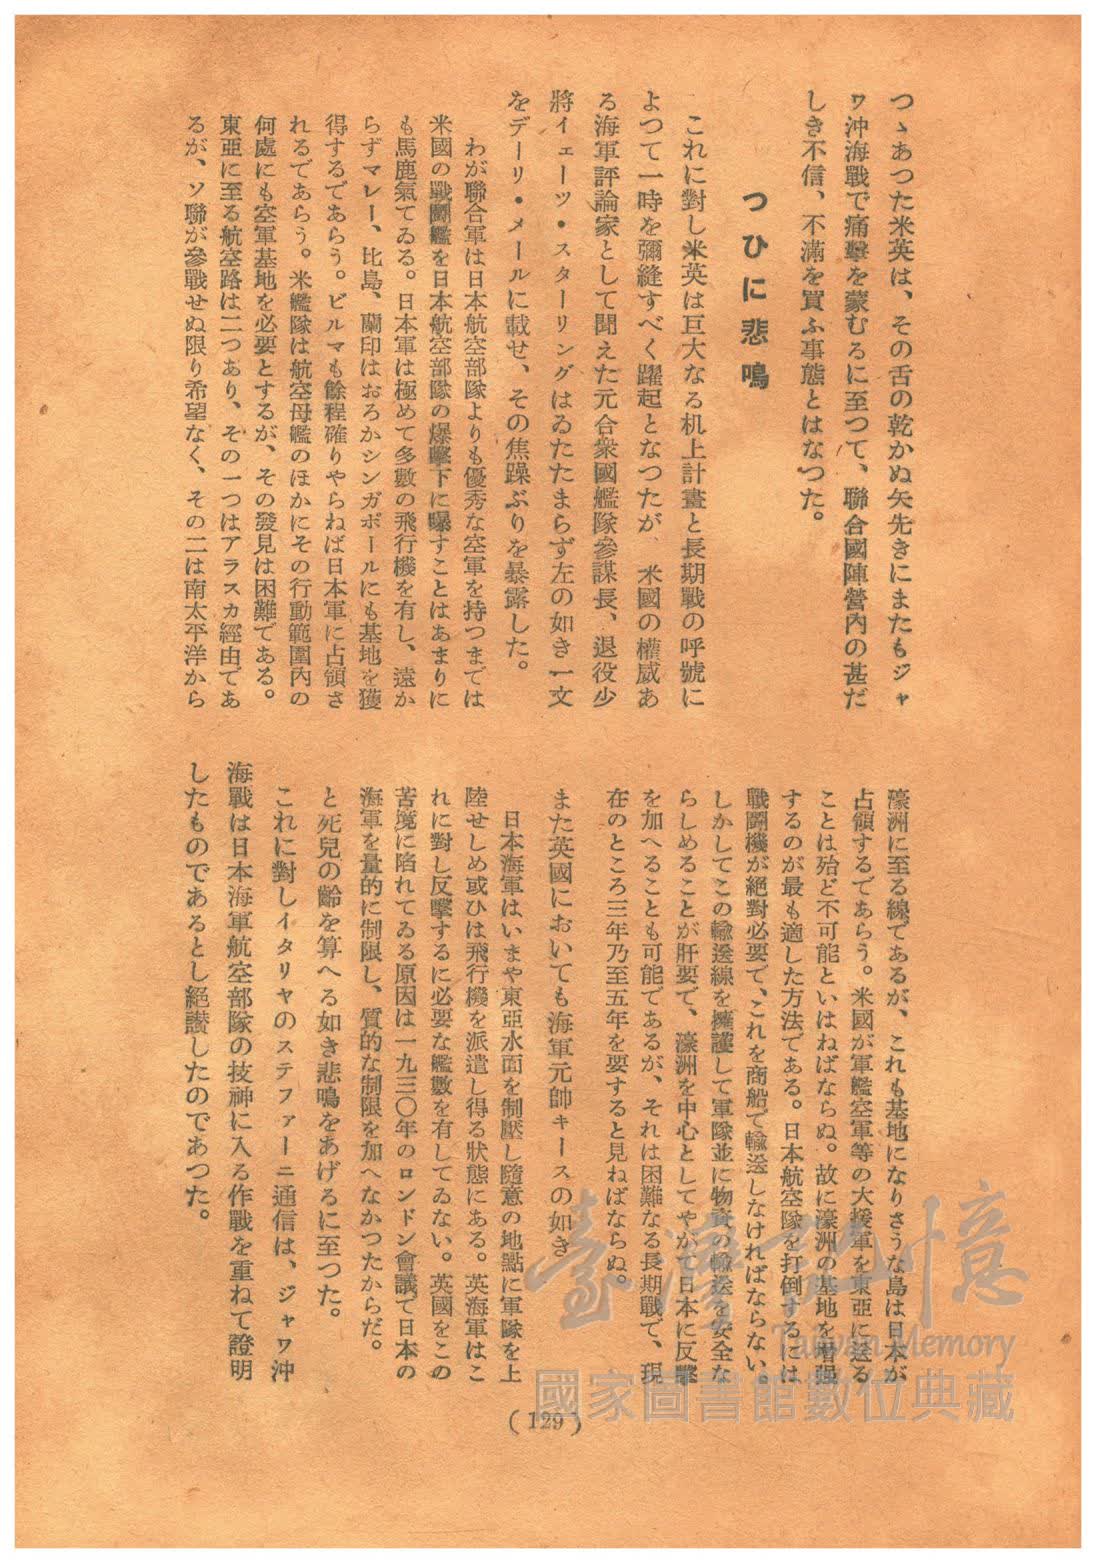 つゝあつた米英は、その舌の乾かぬ矢先きにまたもジャ
ワ沖海戰で痛擊を蒙むるに至つて、聯合國陣營內の甚だ
しき不信、不滿を買ふ事態とはなつた。
つひに悲鳴
これに對し米英は巨大なる机上計畫と長期戰の呼號に
よつて一時を彌縫すべく躍起となつたが、米國の權威あ
る海軍評論家として聞えた元合衆國艦隊參謀長、退役少
將イェーツ・スターリングはゐたたまらず左の如き一文
をデーリ・メールに載せ、その焦躁ぶりを暴露した。
わが聯合軍は日本航空部隊よりも優秀な空軍を持つまでは
米國の戰鬪艦を日本航空部隊の爆擊下に曝すことはあまりに
も馬鹿氣てゐる。日本軍は極めて多數の飛行機を有し、遠か
らずマレー、比島、蘭印はおろかシンガポールにも基地を獲
得するであらう。ビルマも餘程確りやらねば日本軍に占領さ
れるであらう。米艦隊は航空母艦のほかにその行動範圍內の
何處にも空軍基地を必要とするが、その發見は困難である。
東亞に至る航空路は二つあり、その一つはアラスカ經由であ
るが、ソ聯が參戰せぬ限り希望なく、その二は南太平洋から
濠洲に至る線であるが、これも基地になりさうな島は日本が
占領するであらう。米國が軍艦空軍等の大援軍を東亞に送る
ことは殆ど不可能といはねばならぬ。故に濠洲の基地を增强
するのが最も適した方法である。日本航空隊を打倒するには
戰鬪機が絕對必要で、これを商船で輸送しなければならない。
しかしてこの輸送線を擁護して軍隊並に物資の輸送を安全な
らしめることが肝要で、濠洲を中心としてやがて日本に反擊
を加へることも可能であるが、それは困難なる長期戰で、現
在のところ三年乃至五年を要すると見ねばならぬ。
また英國においても海軍元帥キースの如き
日本海軍はいまや東亞水面を制壓し隨意の地點に軍隊を上
陸せしめ或ひは飛行機を派遣し得る狀態にある。英海軍はこ
れに對し反擊するに必要な艦數を有してゐない。英國をこの
苦境に陷れてゐる原因は一九三〇年のロンドン會議で日本の
海軍を量的に制限し、質的な制限を加へなかつたからだ。
と死兒の齡を算へる如き悲鳴をあげるに至つた。
これに對しイタリヤのステファーニ通信は、ジャワ沖
海戰は日本海軍航空部隊の技神に入る作戰を重ねて證明
したものであるとし絕讚したのであつた。
(129)
臺灣記憶
Taiwan Memory
國家圖書館數位典藏